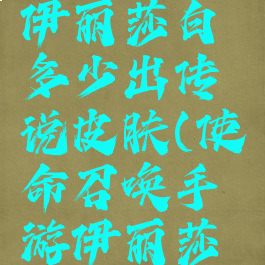 伊丽莎白
多少出传
说皮肤(使
命召唤手
游伊丽莎